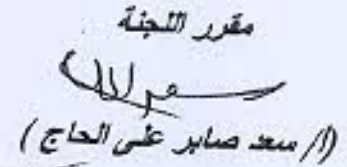 مقرر اللجنة
(ا/ سعد صابر على الحاج )